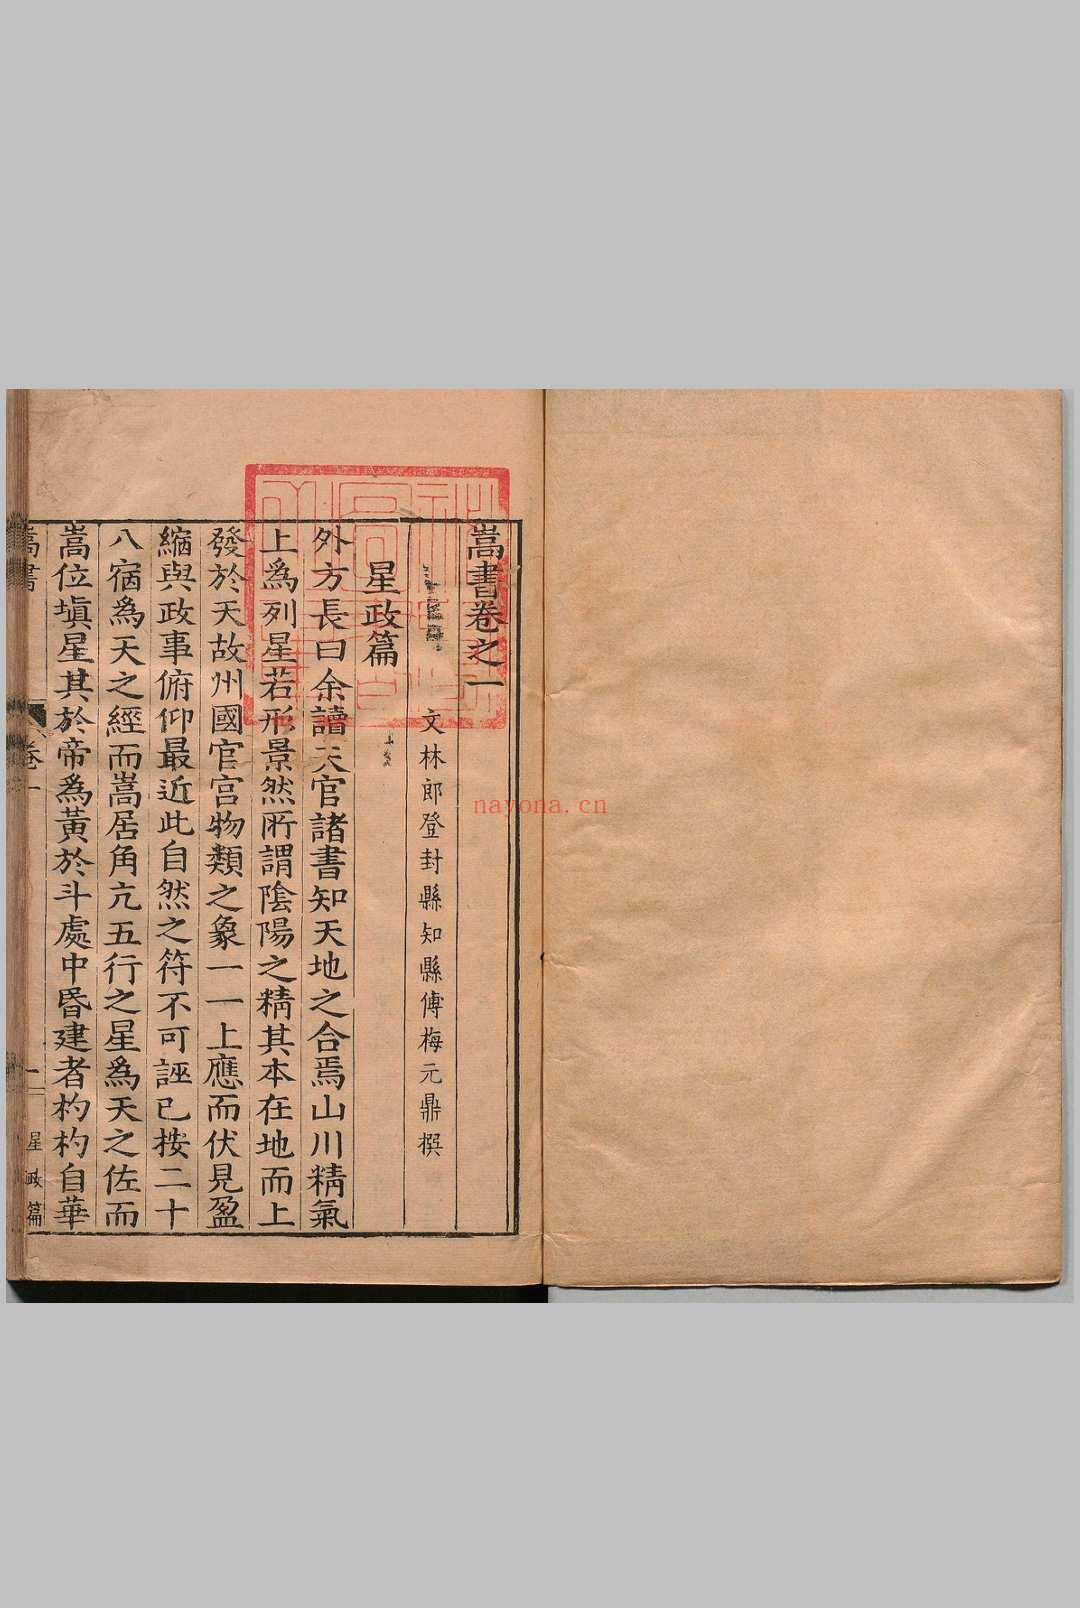 嵩書卷之一
文林郎登封縣知縣傅梅元鼎撰
星政篇
外方長曰余讀天官諸書知天地之合焉山川精氣
上爲列星若形景然所謂陰陽之精其本在地而上
發於天故州國官宮物類之象一一上應而伏見盈
縮與政事俯仰最近此自然之符不可誣已按二十
八宿爲天之經而嵩居角亢五行之星爲天之佐而
嵩位塡星其於帝爲黃於斗處中昬建者杓杓自華
嵩書
卷一
一
星政篇
nayona.cn